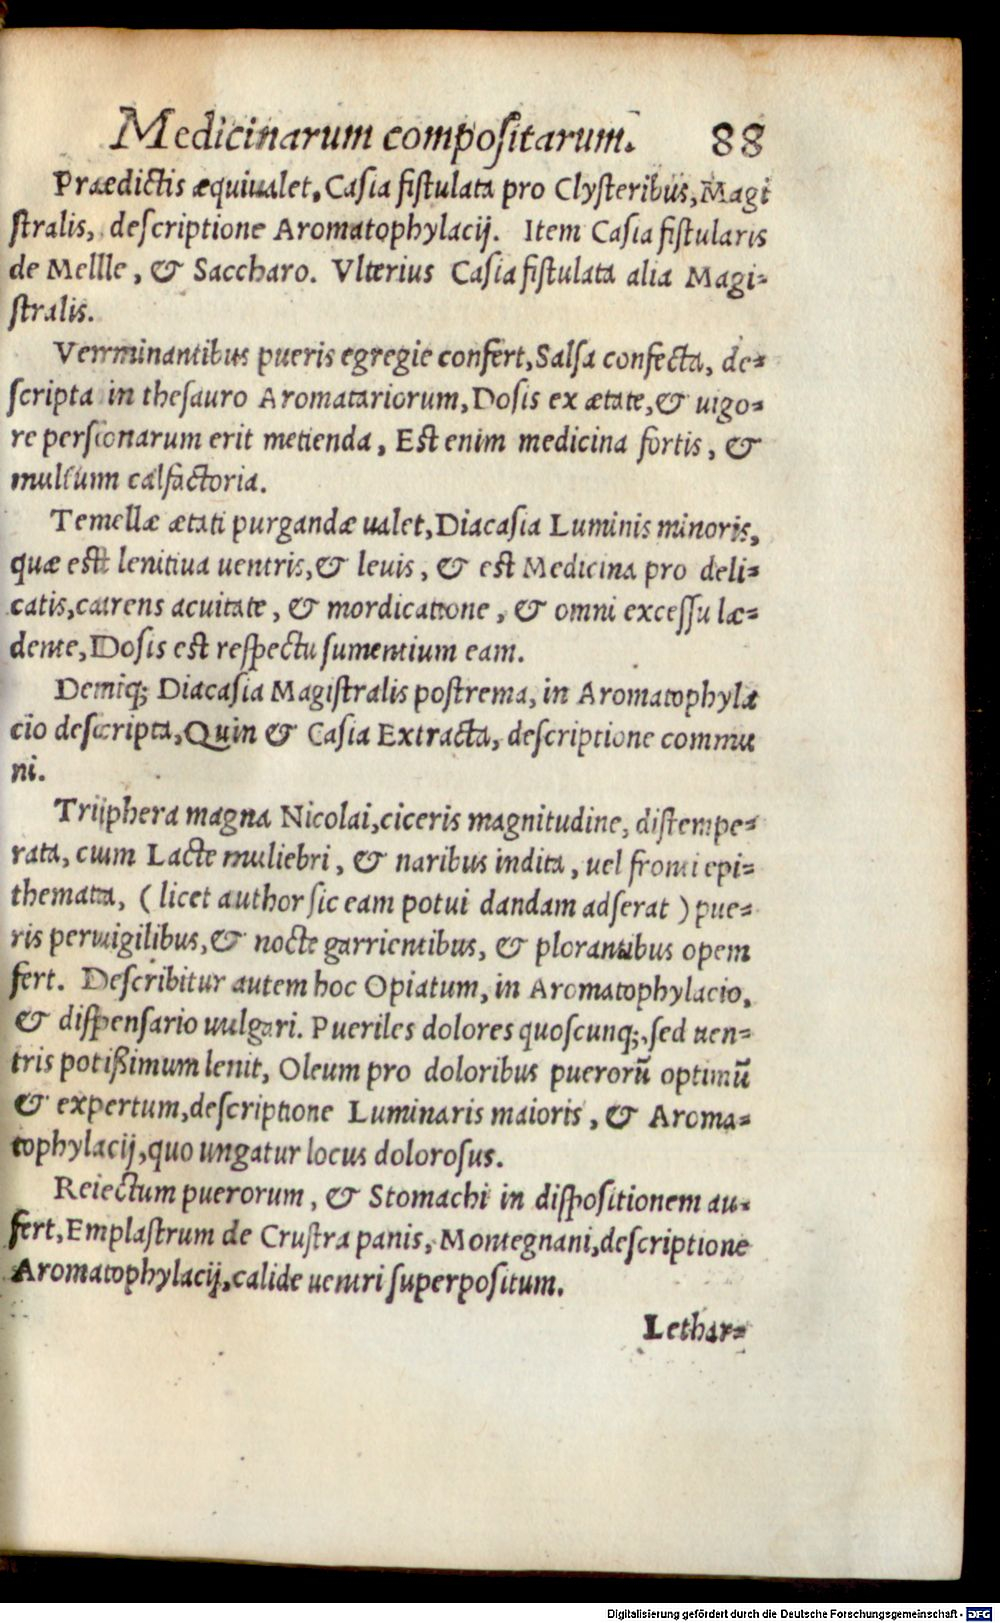 Medicinarum compositarum. 88
Prædictis æquiualet, Casia fistulata pro Clysteribus, Magi
stralis, descriptione Aromatophylacij. Item Casia fistularis
de Melle, & Saccharo. Vlterius Casia fistulata alia Magi-
stralis.
Verminantibus pueris egregie confert, Salsa confecta, de-
scripta in thesauro Aromatariorum, Dosis ex ætate, & uigo-
re personarum erit metienda, Est enim medicina fortis, &
multum calfactoria.
Tenellæ ætati purgandæ ualet, Diacasia Luminis minoris,
quæ est lenitiua uentris, & leuis, & est Medicina pro deli-
catis, carens acuitate, & mordicatione, & omni excessu læ-
dente, Dosis est respectu sumentium eam.
Deniq; Diacasia Magistralis postrema, in Aromatophyla
cio descripta, Quin & Casia Extracta, descriptione commu
ni.
Triphera magna Nicolai, ciceris magnitudine, distempe-
rata, cum Lacte muliebri, & naribus indita, uel fronti epi-
themata, (licet author sic eam potui dandam adserat) pue-
ris peruigilibus, & nocte garrientibus, & plorantibus opem
fert. Describitur autem hoc Opiatum, in Aromatophylacio,
& dispensario uulgari. Pueriles dolores quoscunq;, sed uen-
tris potißimum lenit, Oleum pro doloribus puerorũ optimũ
& expertum, descriptione Luminaris maioris, & Aroma-
tophylacij, quo ungatur locus dolorosus.
Reiectum puerorum, & Stomachi in dispositionem au-
fert, Emplastrum de Crustra panis, Montegnani, descriptione
Aromatophylacij, calide uentri superpositum.
Lethar-
Digitalisierung gefördert durch die Deutsche Forschungsgemeinschaft - DFG